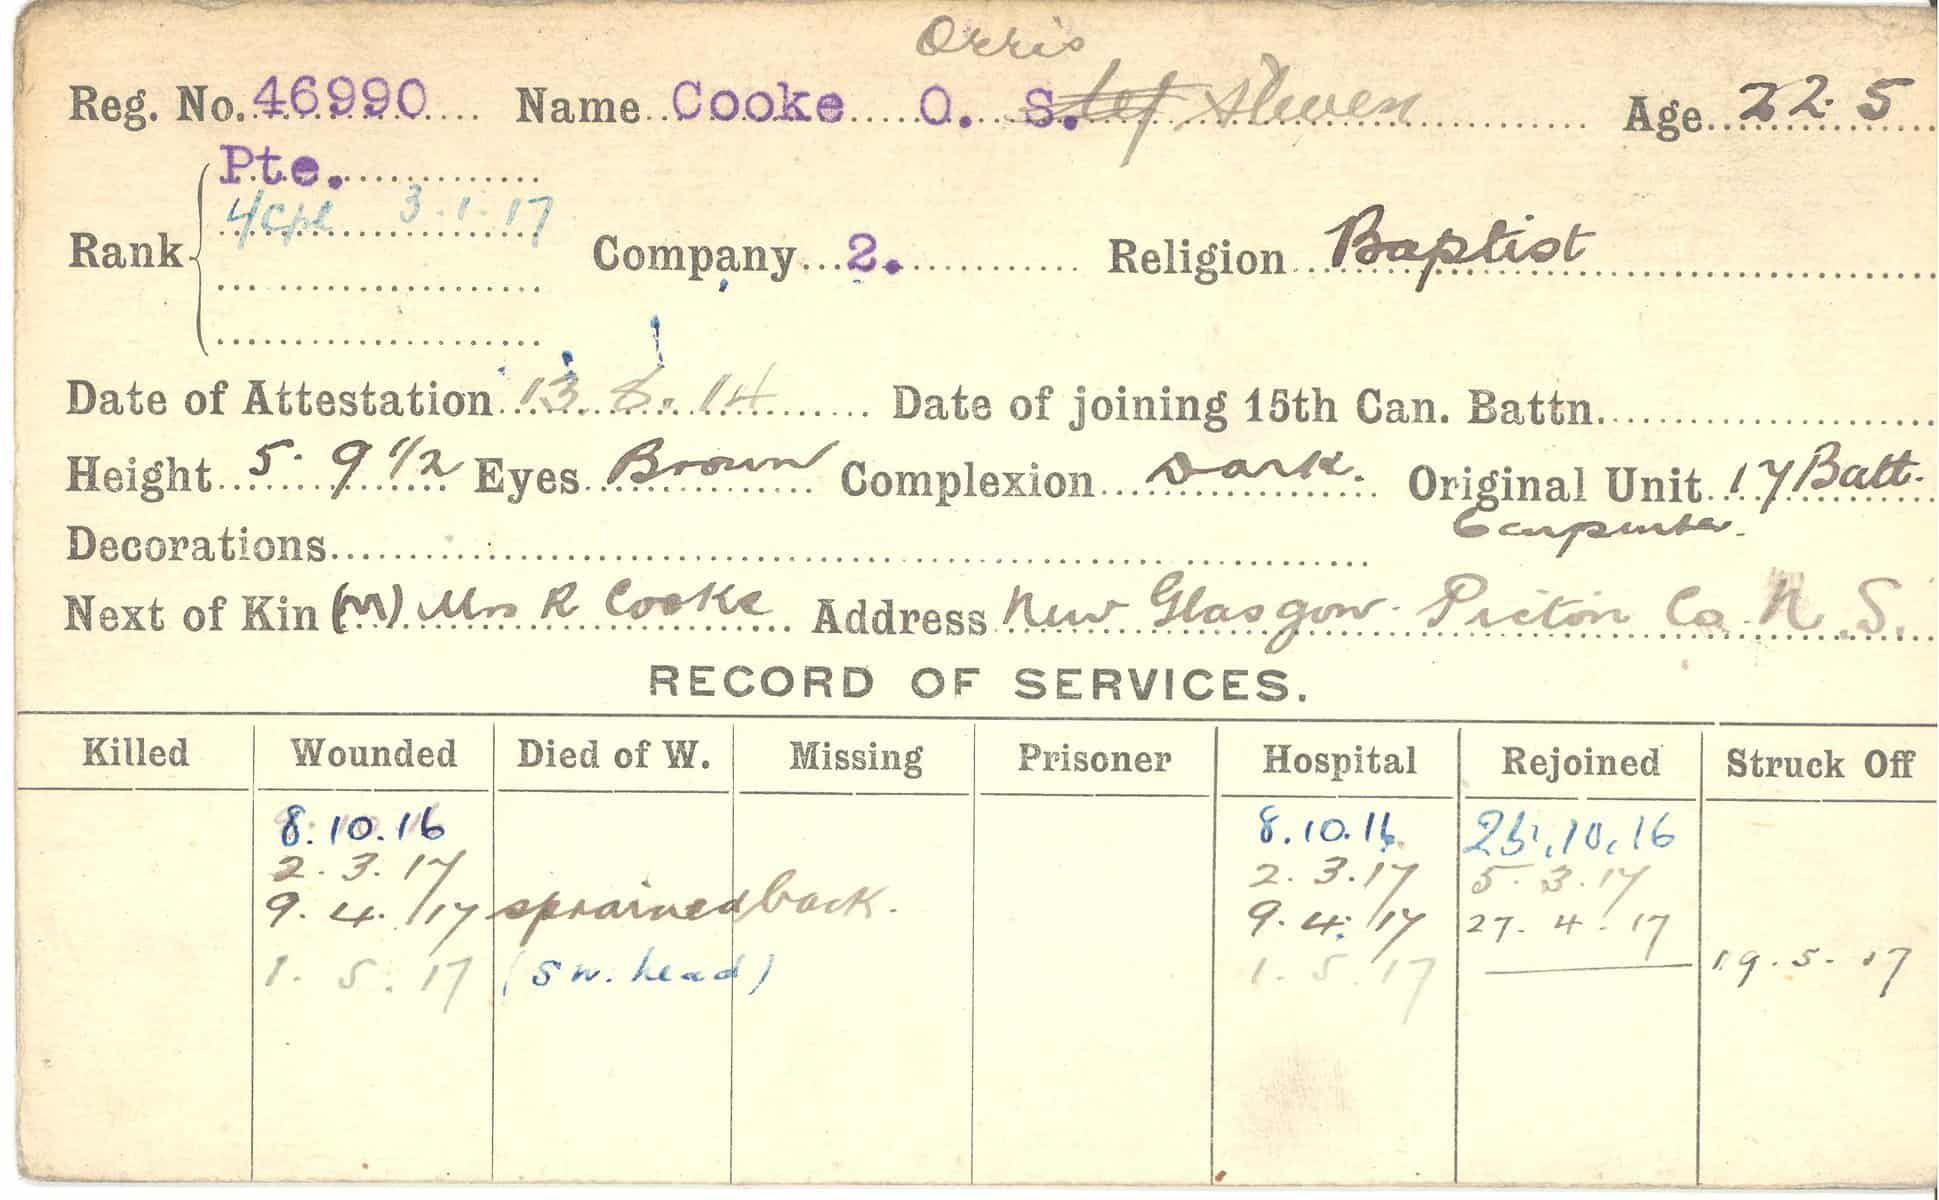 Orris
Reg. No. 46990 Name Cooke O. S. Steven Age 22.5
Pte.
Rank L/Cpl 3.1.17 Company 2. Religion Baptist
Date of Attestation 13.8.14 Date of joining 15th Can. Battn.
Height 5.9 1/2 Eyes Brown Complexion Dark. Original Unit 17 Batt.
Carpenter.
Decorations
Next of Kin (M) Mrs R Cooke Address New Glasgow. Picton Co N.S.
RECORD OF SERVICES.
Killed Wounded Died of W. Missing Prisoner Hospital Rejoined Struck Off
8.10.16 8.10.16 .10.16
2.3.17 2.3.17 5.3.17
9.4.17 sprained back. 9.4.17 27.4.17
1.5.17 (S w. head) 1.5.17 19.5.17